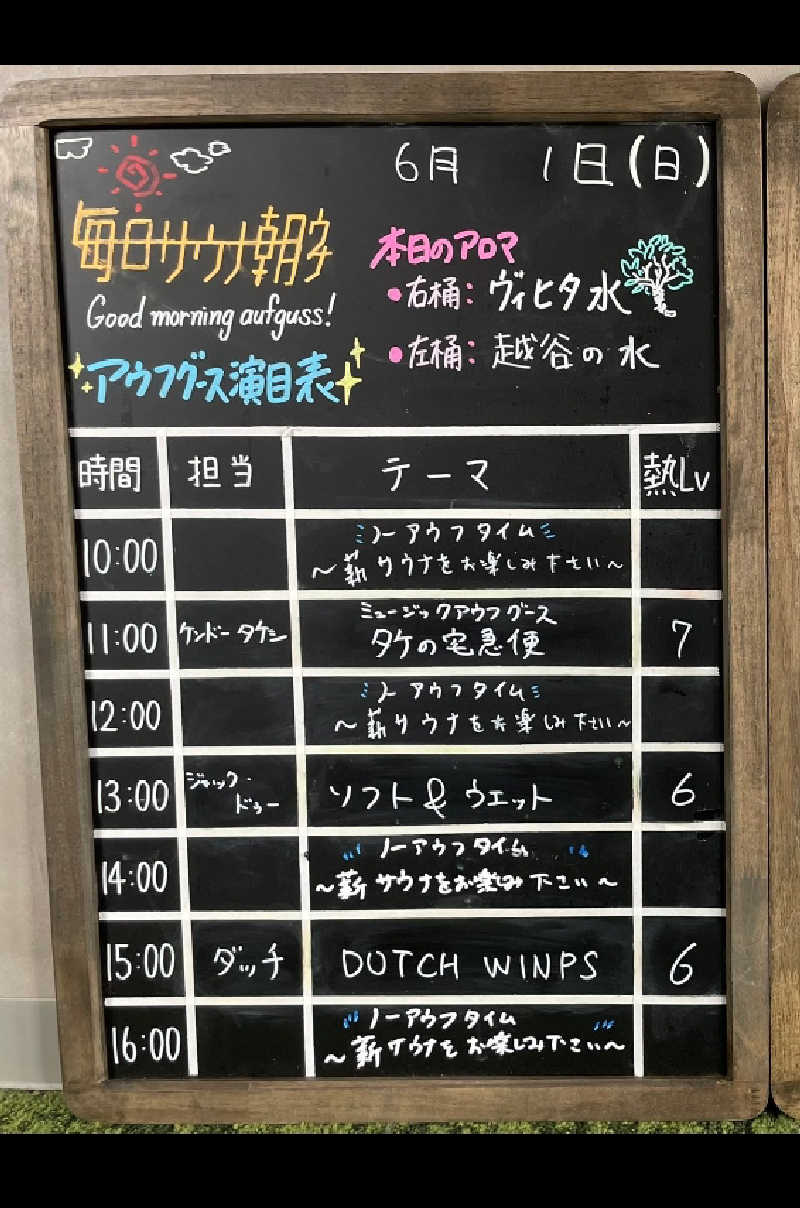 6月 1日(日)
毎日サウナ朝字
Good morning aufguss!
アウフグース演目表
本日のアロマ
●右桶：ヴィヒタ水
●左桶：越谷の水
時間 担当 テーマ 熱Lv
10:00 ノーアウフタイム
～薪サウナをお楽しみ下さい～
11:00 ケンドータケシ ミュージックアウフグース
タケの宅急便 7
12:00 ノーアウフタイム
～薪サウナをお楽しみ下さい～
13:00 ジャック・ドゥー ソフト&ウェット 6
14:00 ノーアウフタイム
～薪サウナをお楽しみ下さい～
15:00 ダッチ DOTCH WINPS 6
16:00 ノーアウフタイム
～薪サウナをお楽しみ下さい～